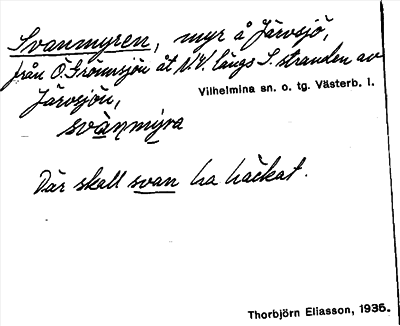 Svanmyren, myr å Järvsjö,
från Ö. Grönnsjön åt N.V. längs S. stranden av
Järvsjön,
Vilhelmina sn. o. tg. Västerb. l.
svànmýra
Där skall svan ha häckat.
Thorbjörn Eliasson, 1935.